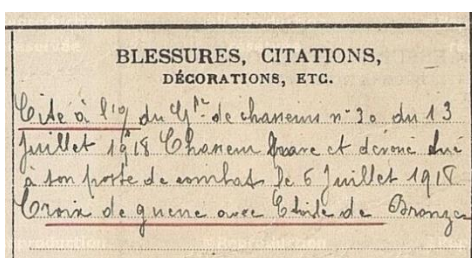 BLESSURES, CITATIONS,
DÉCORATIONS, ETC.
Cité à l'o/ du Gpe de chasseurs n° 30 du 13
Juillet 1918 Chasseur brave et dévoué tué
à son poste de combat le 6 Juillet 1918
Croix de guerre avec Etoile de Bronze